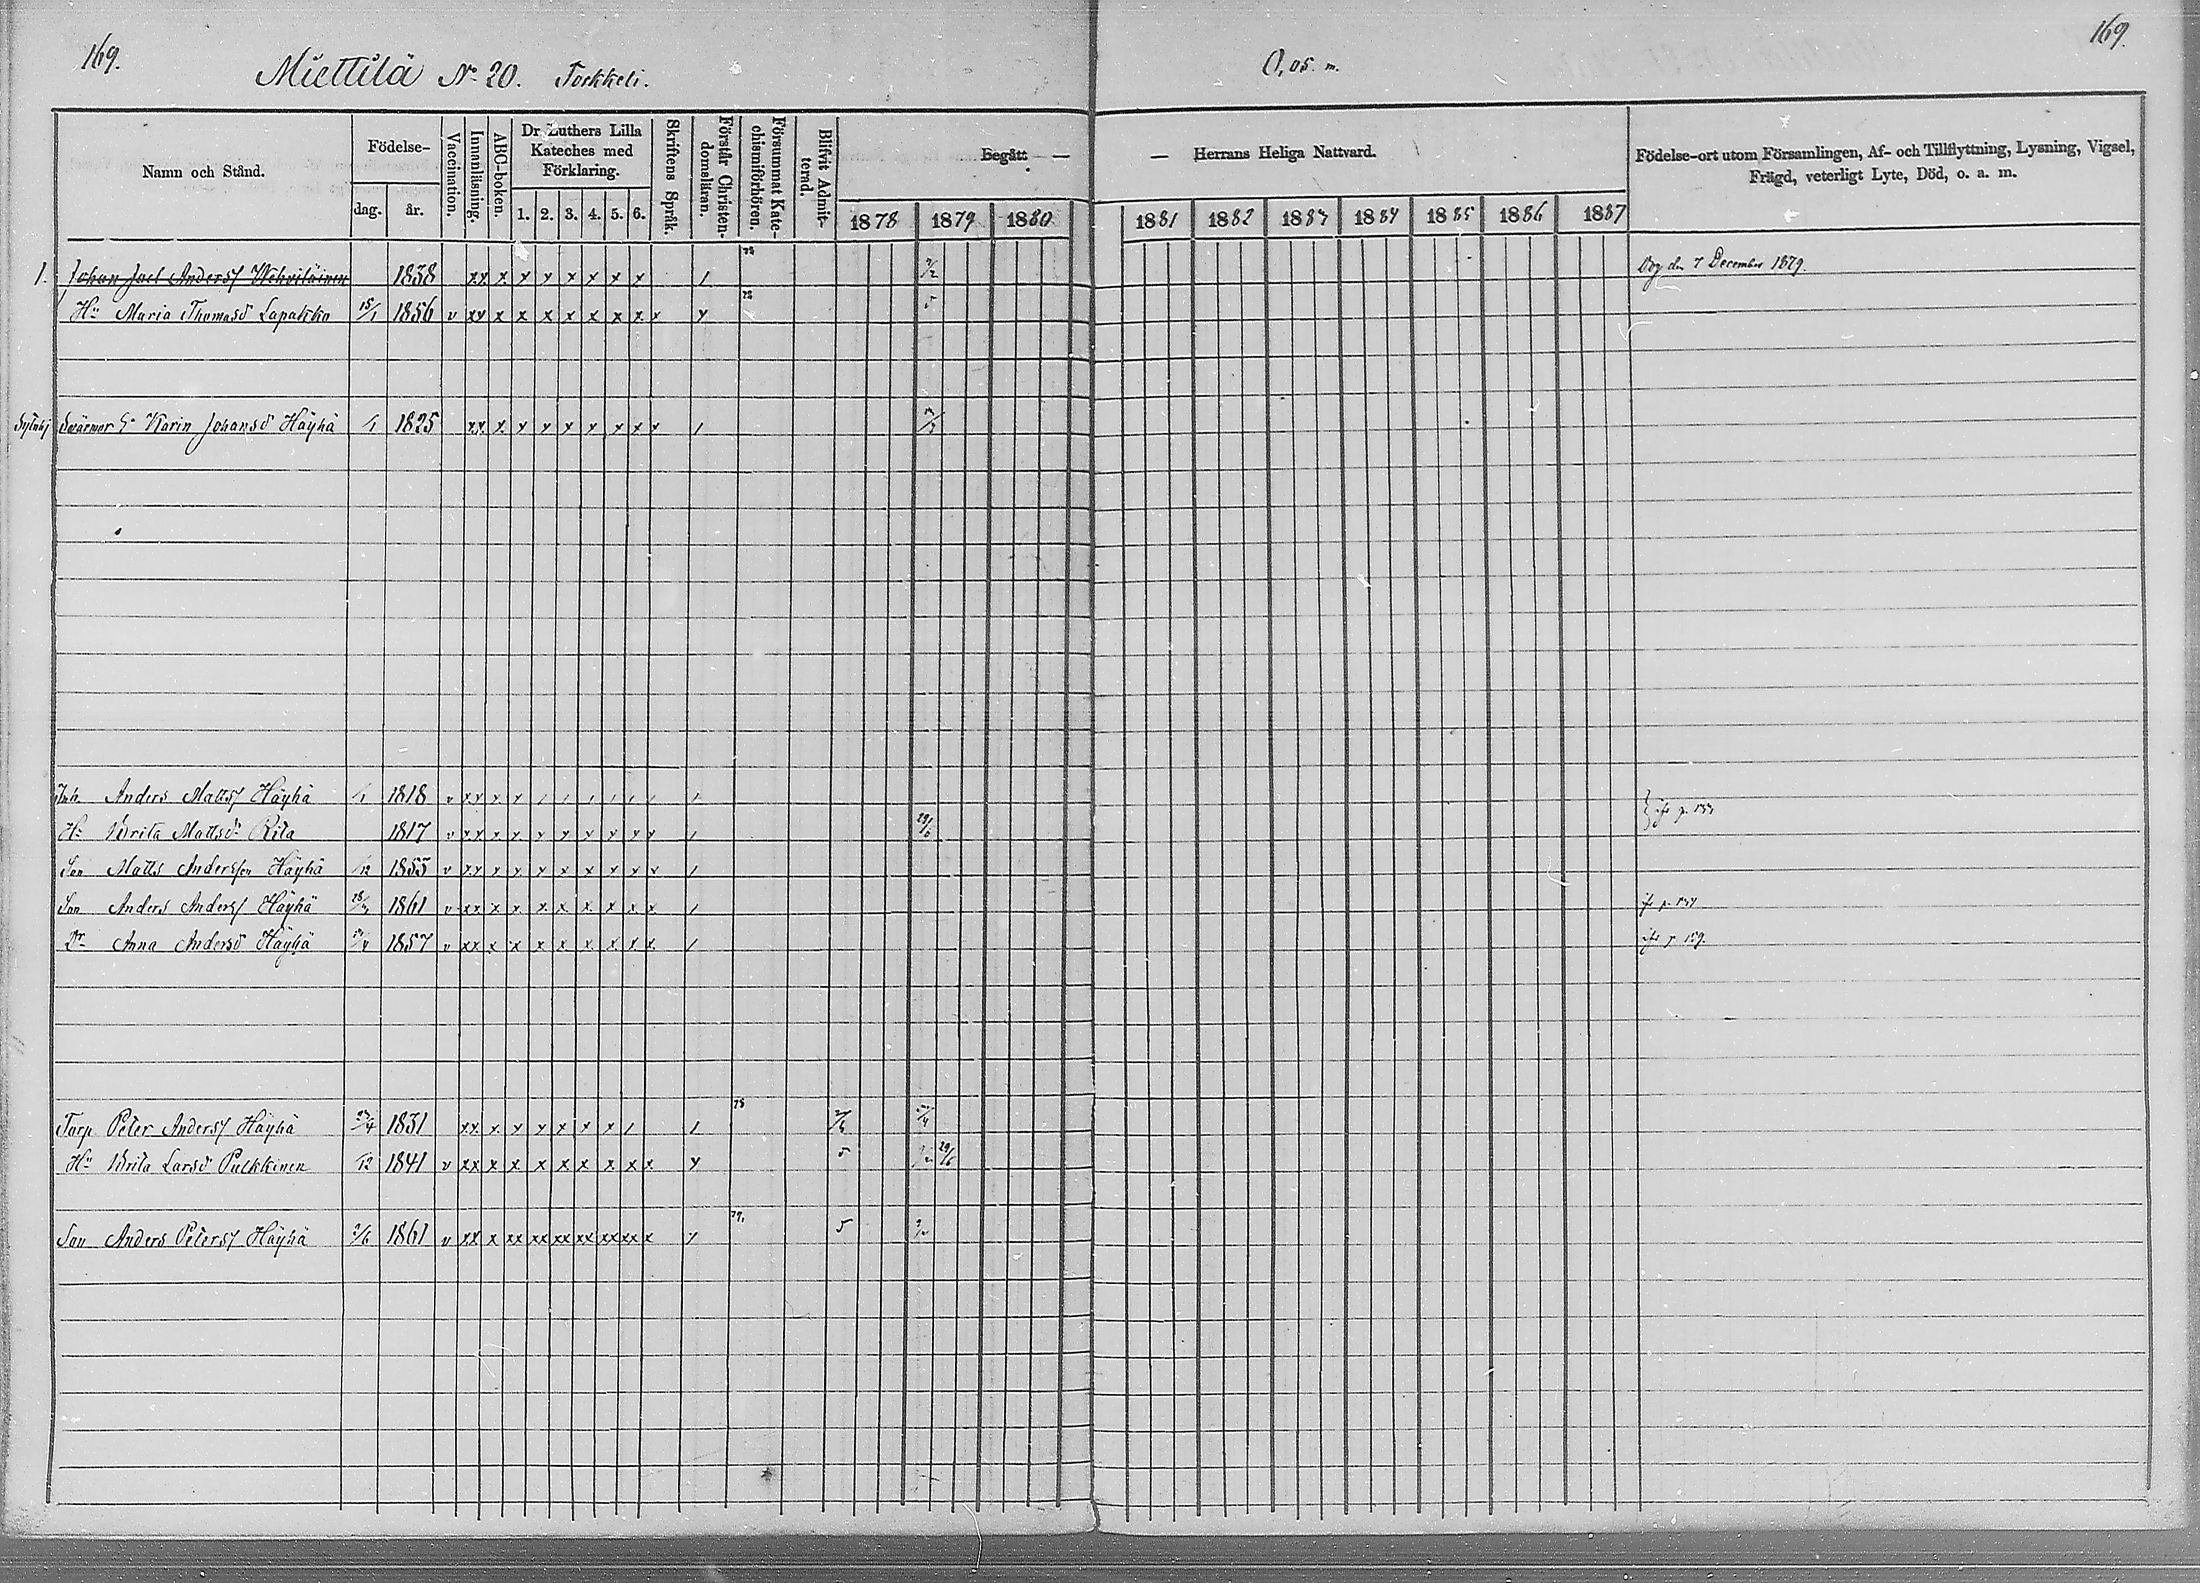 169.
Miettilä No 20. Torkkeli.
0,05 m.
169.
Namn och Stånd.
Födelse-
dag. år.
Vaccination.
Innanläsning.
ABC-boken.
Dr Luthers Lilla
Kateches med
Förklaring.
1. 2. 3. 4. 5. 6.
Skriftens Språk.
Förstår Christen-
domsläran.
Försummat Kate-
chismiförhören.
Blifvit Admit-
terad.
Begått — — Herrans Heliga Nattvard.
1878 1879 1880 1881 1882 1883 1884 1885 1886 1887
Födelse-ort utom Församlingen, Af- och Tillflyttning, Lysning, Vigsel,
Frägd, veterligt Lyte, Död, o. a. m.
1. Johan Anders 1838 xx x x x x x x x / Dog den 7 December 1879.
Hu Maria Thomasd Lapakko 15/1 1856 v xx x x x x x x x x 5
Karin Johansd Häyhä /1 1825 xx x x x x x x x x /
Anders Matts Häyhä /1 1818 v xx x x / / / / / / /
Hu Brita Mattsd 1817 v xx x x x x x x x x / 29/6
Son Matts Andersson Häyhä /12 1855 v xx x x x x x x x x /
Son Anders Anders Häyhä 1861 v xx x x x x x x x x /
Dr Anna Andersd Häyhä 1857 v xx x x x x x x x x /
Torp Peter Anders Häyhä 1831 xx x x x x x x / / 78
Hu Brita Larsd Pulkkinen /12 1841 v xx x x x x x x x x 5 29/6
Son Anders Peters Häyhä 1861 v xx x xx xx xx xx xx xx x 79. 5